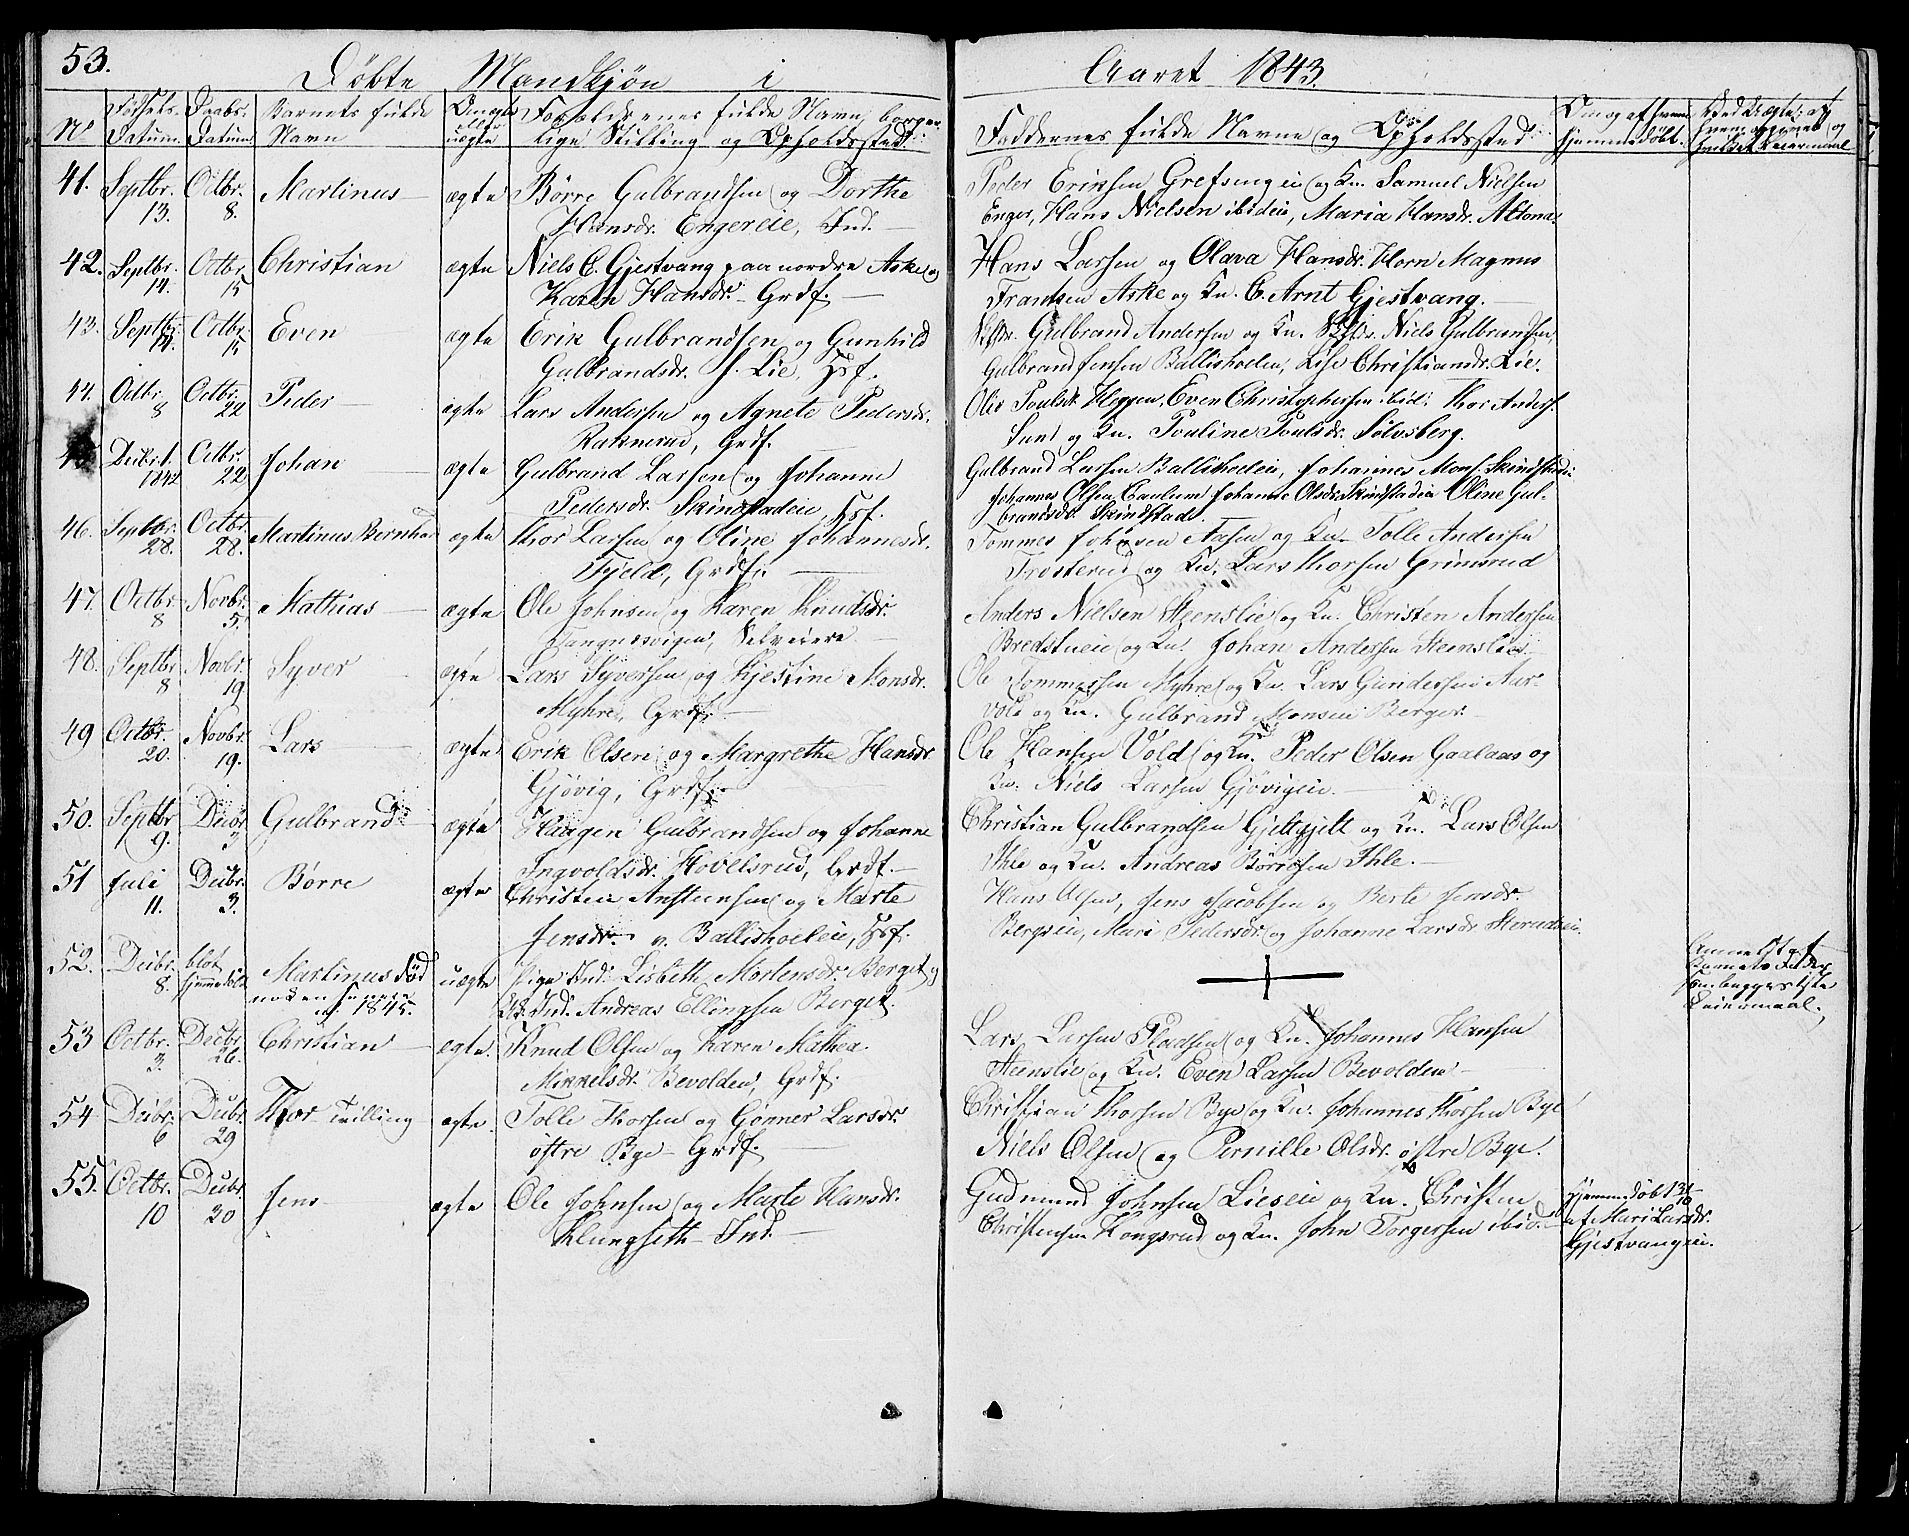 53.
Døbte Mandkjøn i Aaret 1843.
No Fødsels Datum. Daabs Datum Barnets fulde Navn Om ægte eller uægte Forældrenes fulde Navn, borgerlige Stilling og Opholdssted. Faddernes fulde Navne og Opholdssted. Om og af hvem hjemmedøbt.
41. Septbr. 13. Octbr. 8. Martinus ægte Børre Gulbrandsen og Dorthe
Hansdr. Engereie, Ind.
Peder Eriksen Grefsengeie og Kn. Samuel Nielsen
Enger, Hans Nielsen ibideie, Maria Hansdr. Altona.
42. Septbr. 14. Octbr. 15 Christian ægte Niels C. Gjestvang paa nordre Aske og
Karen Hansdr. Grdf.
Hans Larsen og Olava Hansdr. Horn Magnus
Frantsen Aske og Kn. C. Arnt Gjestvang.
43. Septbr. 14. Octbr. 15 Even ægte Erik Gulbrandsen og Gunhild
Gulbrandsdr. S. Lie, Hsf.
Gulbrand Andersen og Kn. Niels Gulbrandsen,
Gulbrand Jensen Ballishoelen, Lise Christiansdr. Lie.
44. Octbr. 8 Octbr. 22 Peder ægte Lars Andersen og Agnete Pedersdr.
Ruknerud, Grdf.
Ole Poulsen Heggen, Even Christophersen ibid: Thor Anders.
Lund og Kn. Pouline Poulsdr. Sølvsberg.
Decbr. 1. 1842 Octbr. 22 Johan ægte Gulbrand Larsen og Johanne
Pedersdr. Skindstadeie, Hsf.
Gulbrand Larsen Ballishoeleie, Johannes Mons. Skindstadeie
Johannes Olsen Johanne Olsdr. Skindstadeie Oline Gul-
brandsdr. Skindstad.
46. Septbr. 28. Octbr. 28. Martinus Bernhard ægte Thor Larsen og Oline Johannesdr.
Fjeld, Grdf.
Tommes Johnsen Aasen og Kn. Tolle Andersen
Trosterud og Kn. Lars Thorsen Grimsrud
47. Octbr. 8 Novbr. 5. Mathias ægte Ole Johnsen og Karen Knudsdr.
Tangnesvigen, Selveiere
Anders Nielsen Steenslie og Kn. Christen Andersen
Bredstueie og Kn. Johan Andersen Steenslie.
48. Septbr. 8 Novbr. 19 Syver ægte Lars Syversen og Kjestine Monsdr.
Myhre, Grdf.
Ole Tommesen Myhre og Kn. Lars Gundersen Aar-
vold og Kn. Gulbrand Monsen Berger.
49 Octbr. 20. Novbr. 19. Lars ægte Erik Olsen og Margrethe Hansdr.
Gjøvig, Grdf.
Ole Hansen Vold og Kn. Peder Olsen Gaalaas og
Kn. Niels Larsen Gjøvigeie.
50. Septbr 9. Decbr 3 Gulbrand ægte Haagen Gulbrandsen og Johanne
Ingvoldsdr. Hovelsrud, Grdf.
Christian Gulbrandsen Gjeltgjelt og Kn. Lars Olsen
Ihle og Kn. Andreas Børresen Ihle.
51 Juli 11. Decbr. 3. Børre ægte Christen Anstensen og Marte
Jensdr. v. Ballishoeleie, Hsf.
Hans Olsen, Jens Jacobsen og Berte Jensdr.
Bergseie, Mari Pedersdr. og Johanne Larsdr.
52. Decbr. 8. blot hjemmedøbt Martinus Fød
1845. uægte Pige Ind. Lisbeth Mortensdr. Berget og
Ind. Andreas Ellingsen Berget.
Anmeldt af
Barnets Fader,
som begges 1ste
Leiermaal.
53 Octbr. 3. Decbr. 26. Christian ægte. Knud Olsen og Karen Mathea
Mikkelsdr. Bevolden, Grdf.
Lars Larsen Pladsen og Kn. Johannes Hansen
Steenslie og Kn. Even Larsen Bevolden
54 Decbr. 6 Decbr. 29 Thor Tvilling ægte. Tolle Thorsen og Gønner Larsdr.
østre Bye Grdf.
Christian Thorsen Bye og Kn. Johannes Thorsen Bye
Niels Olsen og Pernille Olsdr. østre Bye.
55. Octbr. 10 Decbr. 30 Jens ægte Ole Johnsen og Marte Hansdr.
Klungseth Ind.
Gudmund Johnsen Lieseie og Kn. Christen
Christensen Kongsrud og Kn. John Torgersen ibid.
Hjemmedøbt 13/10
af Mari Larsdr.
Gjestvangeie.